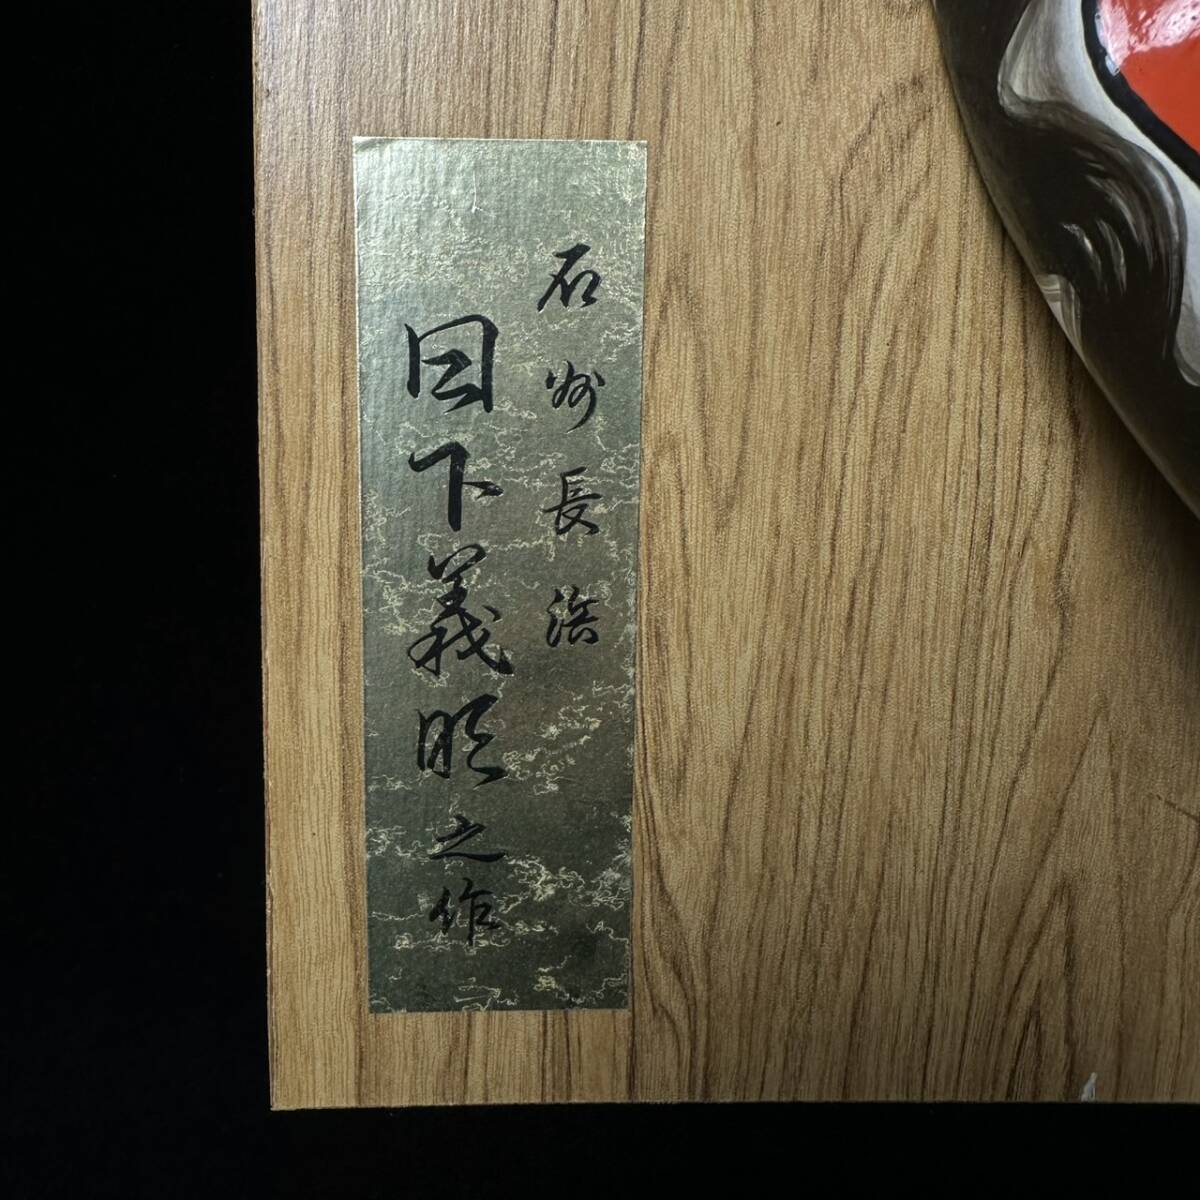 石州長浜
日下義明之作